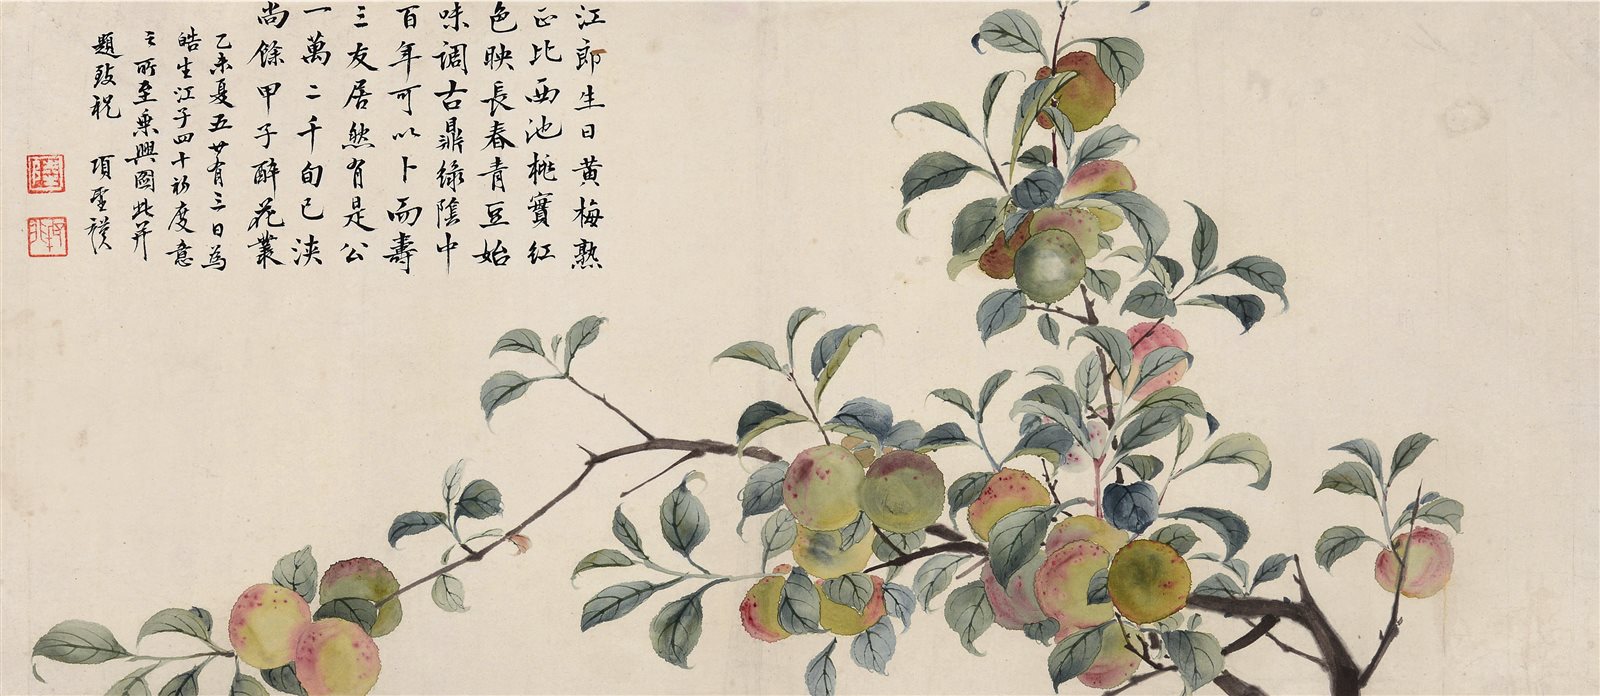 江郎生日黄梅熟
正比西池桃實紅
色映長春青豆始
味調古鼎綠陰中
百年可以卜而壽
三友居然有是公
一萬二千旬已浹
尚餘甲子醉花叢
乙未夏五廿有三日為
皓生江子四十初度意
之所至乘興圖此并
題致祝 項聖謨